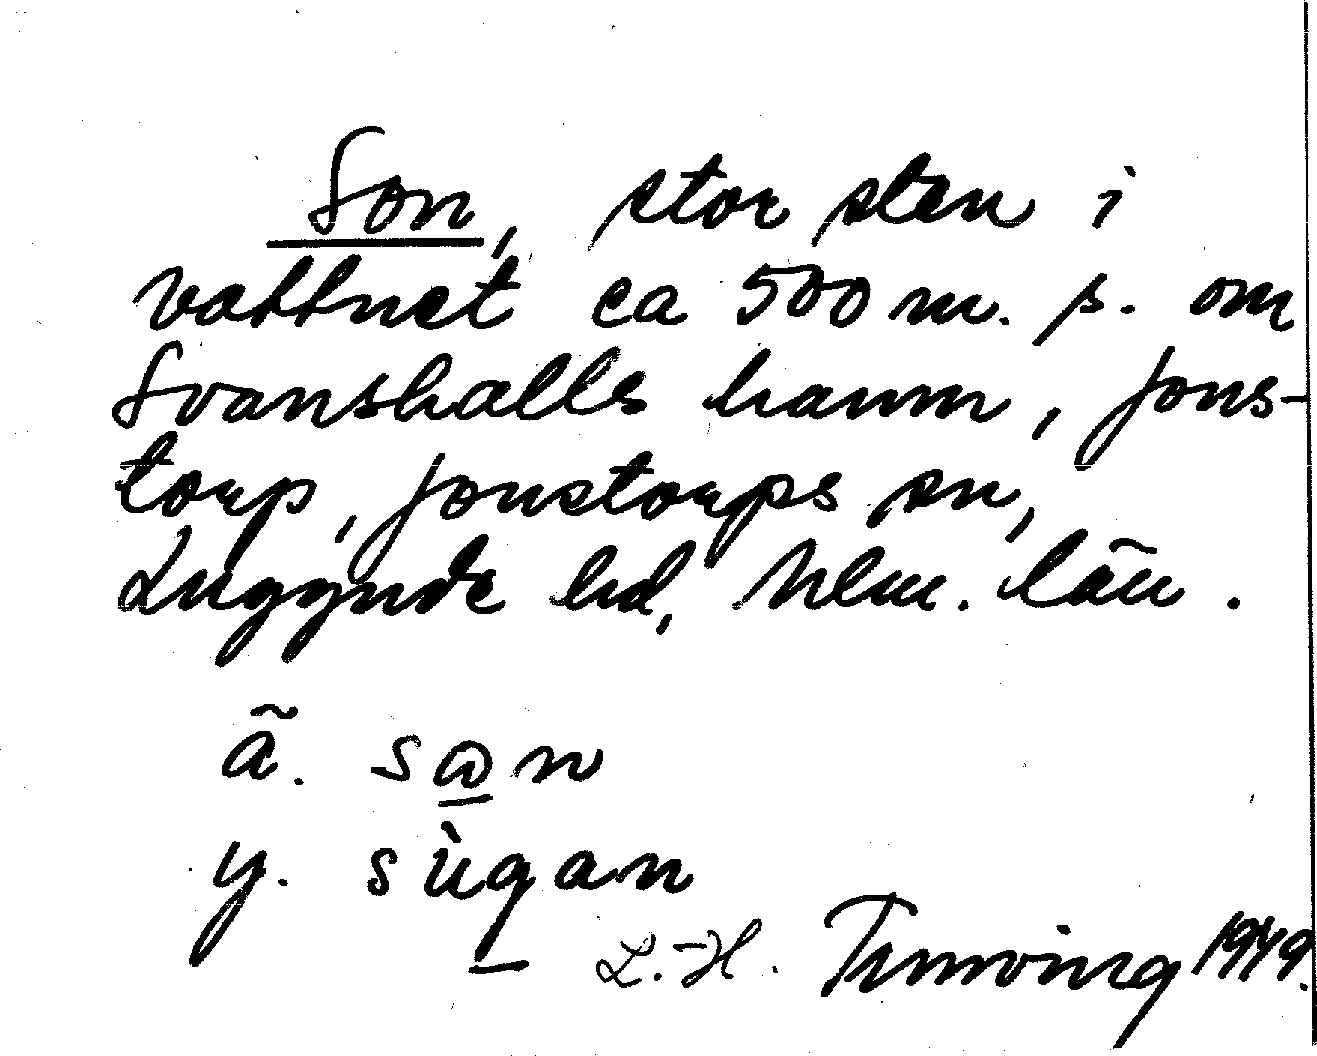 Son, stor sten i
vattnet ca 500 m. s. om
Svanshalls hamn, Jons-
torp, Jonstorps sn,
Luggude hd, Mlm. län.
ã. sɷn
y. sùgan
L.-H. 1949.